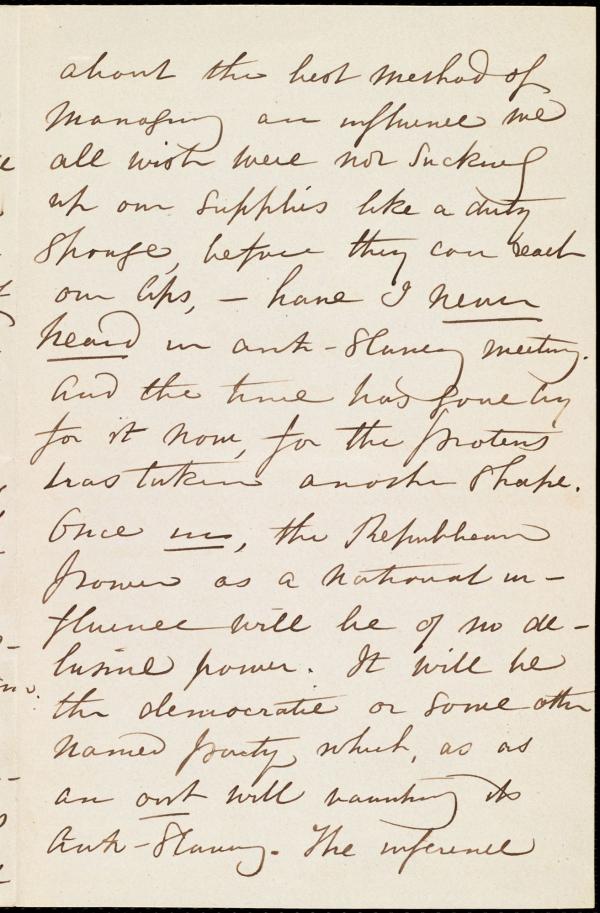 about the best method of
managing an influence we
all wish were not sucking
up our supplies like a dirty
sponge, before they can reach
our lips, – have I never
heard in anti-slavery meeting.
And the time has gone by
for it now, for the proteus
has taken another shape.
Once in, the Republican
power as a national in-
fluence will be of no de-
lusive power. It will be
the democratic or some other
named party which, as as
an out will vaunting its
Anti-Slavery. The inference